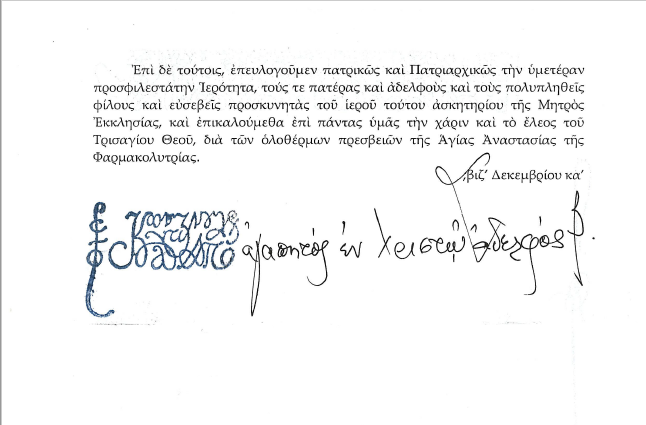 Ἐπὶ δὲ τούτοις, ἐπευλογοῦμεν πατρικῶς καὶ Πατριαρχικῶς τὴν ὑμετέραν
προσφιλεστάτην Ἱερότητα, τούς τε πατέρας καὶ ἀδελφοὺς καὶ τοὺς πολυπληθεῖς
φίλους καὶ εὐσεβεῖς προσκυνητὰς τοῦ ἱεροῦ τούτου ἀσκητηρίου τῆς Μητρὸς
Ἐκκλησίας, καὶ ἐπικαλούμεθα ἐπὶ πάντας ὑμᾶς τὴν χάριν καὶ τὸ ἔλεος τοῦ
Τρισαγίου Θεοῦ, διὰ τῶν ὁλοθέρμων πρεσβειῶν τῆς Ἁγίας Ἀναστασίας τῆς
Φαρμακολυτρίας.
͵βιζ’ Δεκεμβρίου κα’
ἀγαπητὸς ἐν Χριστῷ ἀδελφός